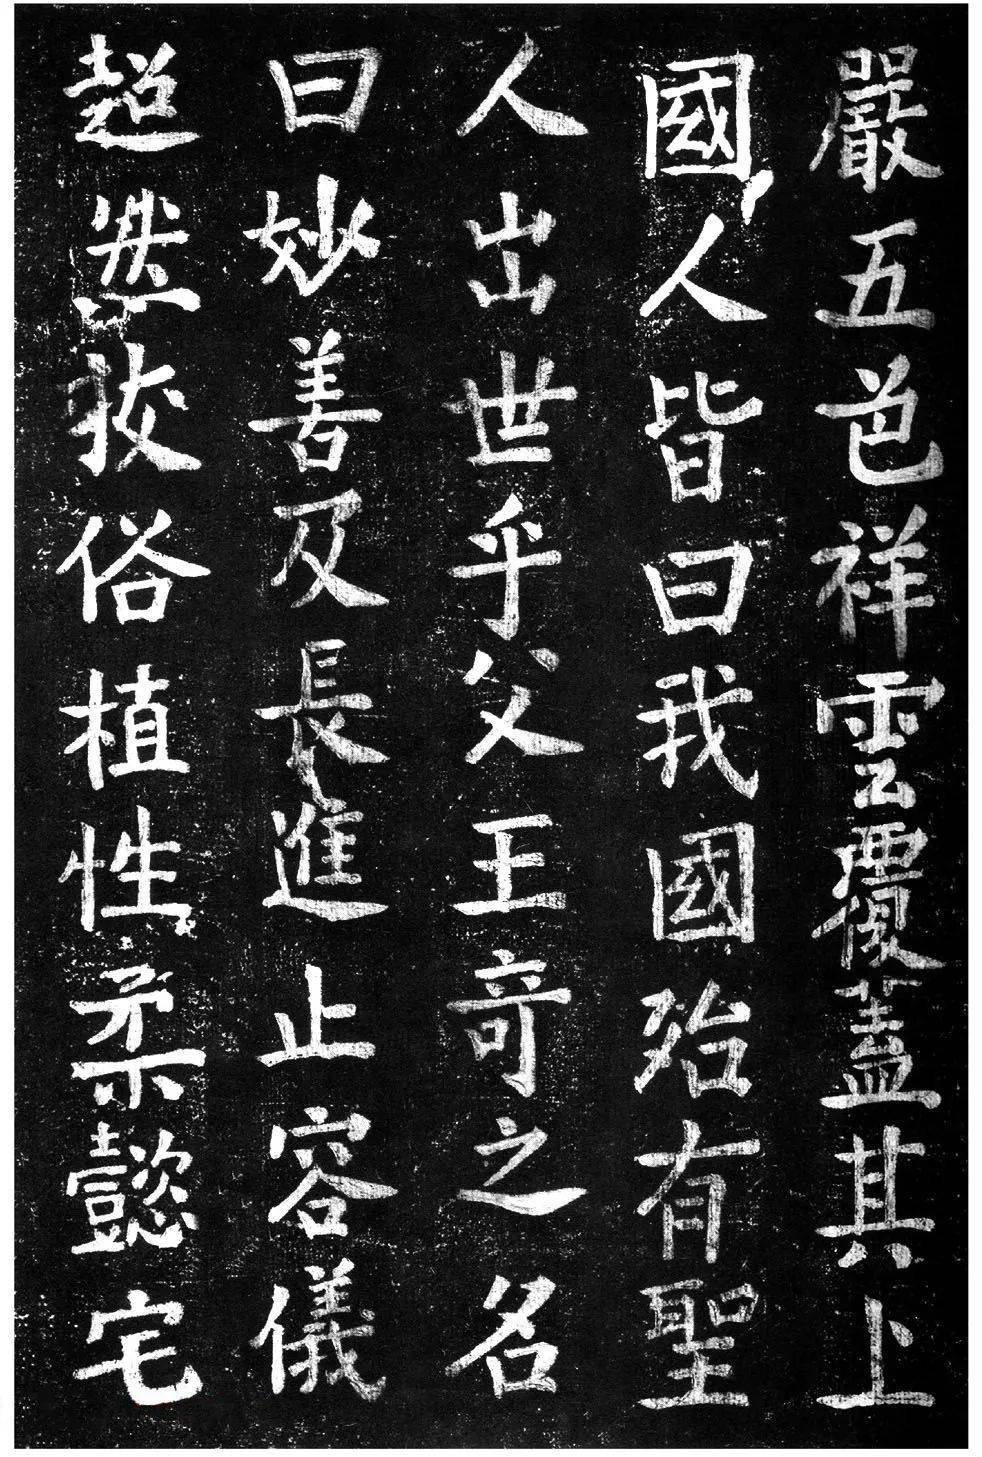 嚴五色祥雲覆蓋其上
國人皆曰我國殆有聖
人出世乎父王奇之名
曰妙善及長進止容儀
超然拔俗植性柔懿宅